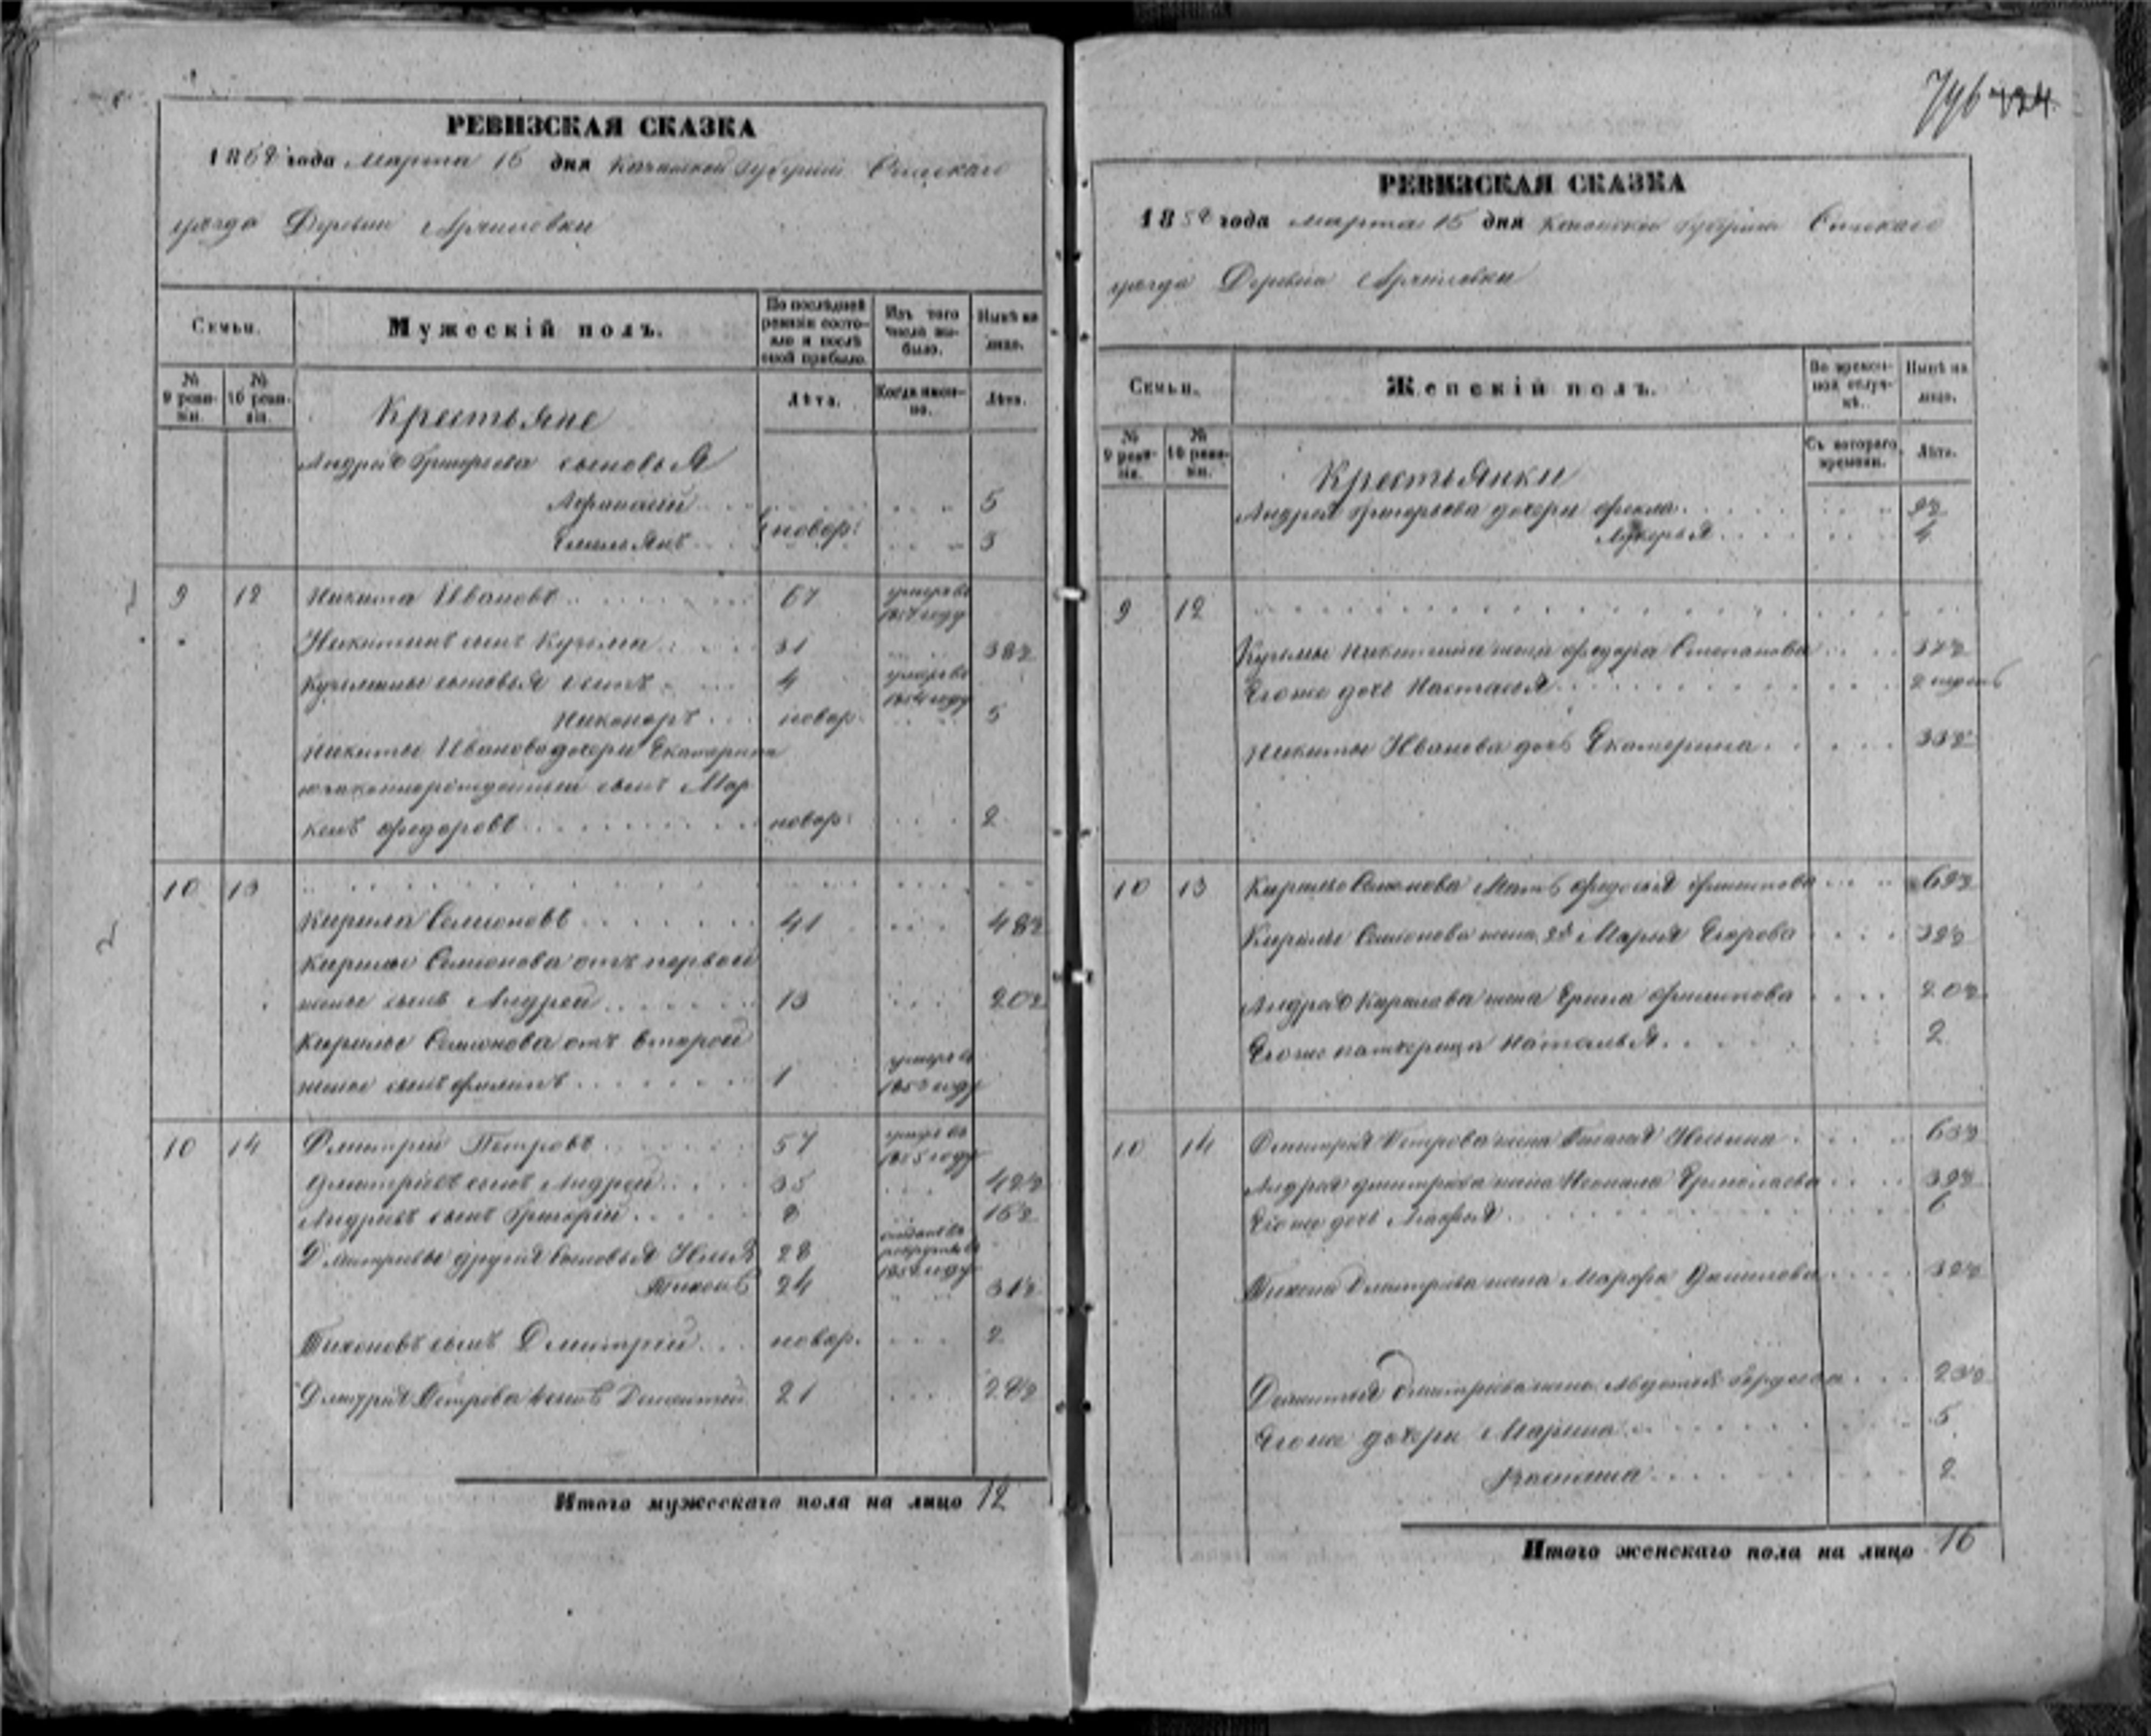 РЕВИЗСКАЯ СКАЗКА
1858 года Марта 15 дня Казанской Губернии Спаскаго
уезда Деревни
Семьи.
Мужескій полъ.
По последней ревизіи состояло и после оной прибыло.
Изъ того числа выбыло.
Ныне на лицо.
№ 9 ревизіи.
№ 10 ревизіи.
Лѣта.
Когда именно.
Лѣта.
Крестьяне
Андрея Григорьева сыновья
Афанасій 5
Емельянъ новор: 3
9 12 Никита Ивановъ 67 умеръ въ
Никитинъ сынъ Кузьма 31 38
Кузьмины сыновья 4 умеръ въ 1854 году
Никаноръ новор. 5
Никиты Иванова дочери Екатерины
незаконнорожденный сынъ Мар
келъ Федоровъ новор: 2
10 13
Кирила Семионовъ 41 48
Кирилы Семионова отъ первой
жены сынъ Андрей 13 20
Кирилы Семионова отъ второй
жены сынъ Филипъ 1 умеръ въ году
10 14 Дмитрей Петровъ 57 умеръ въ 1855 году
Дмитріевъ сынъ Андрей 35 42
Андреевъ сынъ Григорій 8 15
Дмитріевы другія сыновья Илья 28 отданъ въ рекруты въ году
Тихонъ 24 31
Тихоновъ сынъ Дмитрей новор. 2
Дмитрія Петрова сынъ Дементей 21 28
Итого мужескаго пола на лицо 12
796 724
РЕВИЗСКАЯ СКАЗКА
1858 года марта 15 дня Казанской Губерніи Спаскаго
уезда Деревни
Семьи.
Женскій полъ.
Во временной отлучкѣ.
Ныне на лицо.
№ 9 ревизіи.
№ 10 ревизіи.
Съ котораго времени.
Лѣта.
Крестьянки
Андрея Григорьева дочери Фекла
Лукерья 4
9 12
Кузьмы Никитина жена Федора Степанова 37
Егоже дочь Настасья
Никиты Иванова дочь Екатерина 33
10 13 Кирилы Семионова Мать Федосья Филипова 69
Кирилы Семионова жена 2я Марья Егорова 39
Андрея Кирилова жена Ерина Филипова 20
Егоже падчерица Наталья 2
10 14 Дмитрія Петрова жена Пелагея Ильина 63
Андрея Дмитріева жена Ермолаева 39
Егоже дочь Марфья 6
Тихона Дмитріева жена Марфа Данилова 32
Дементья Дмитріева жена Авдотья 23
Егоже дочери Марина 5
2
Итого женскаго пола на лицо 16